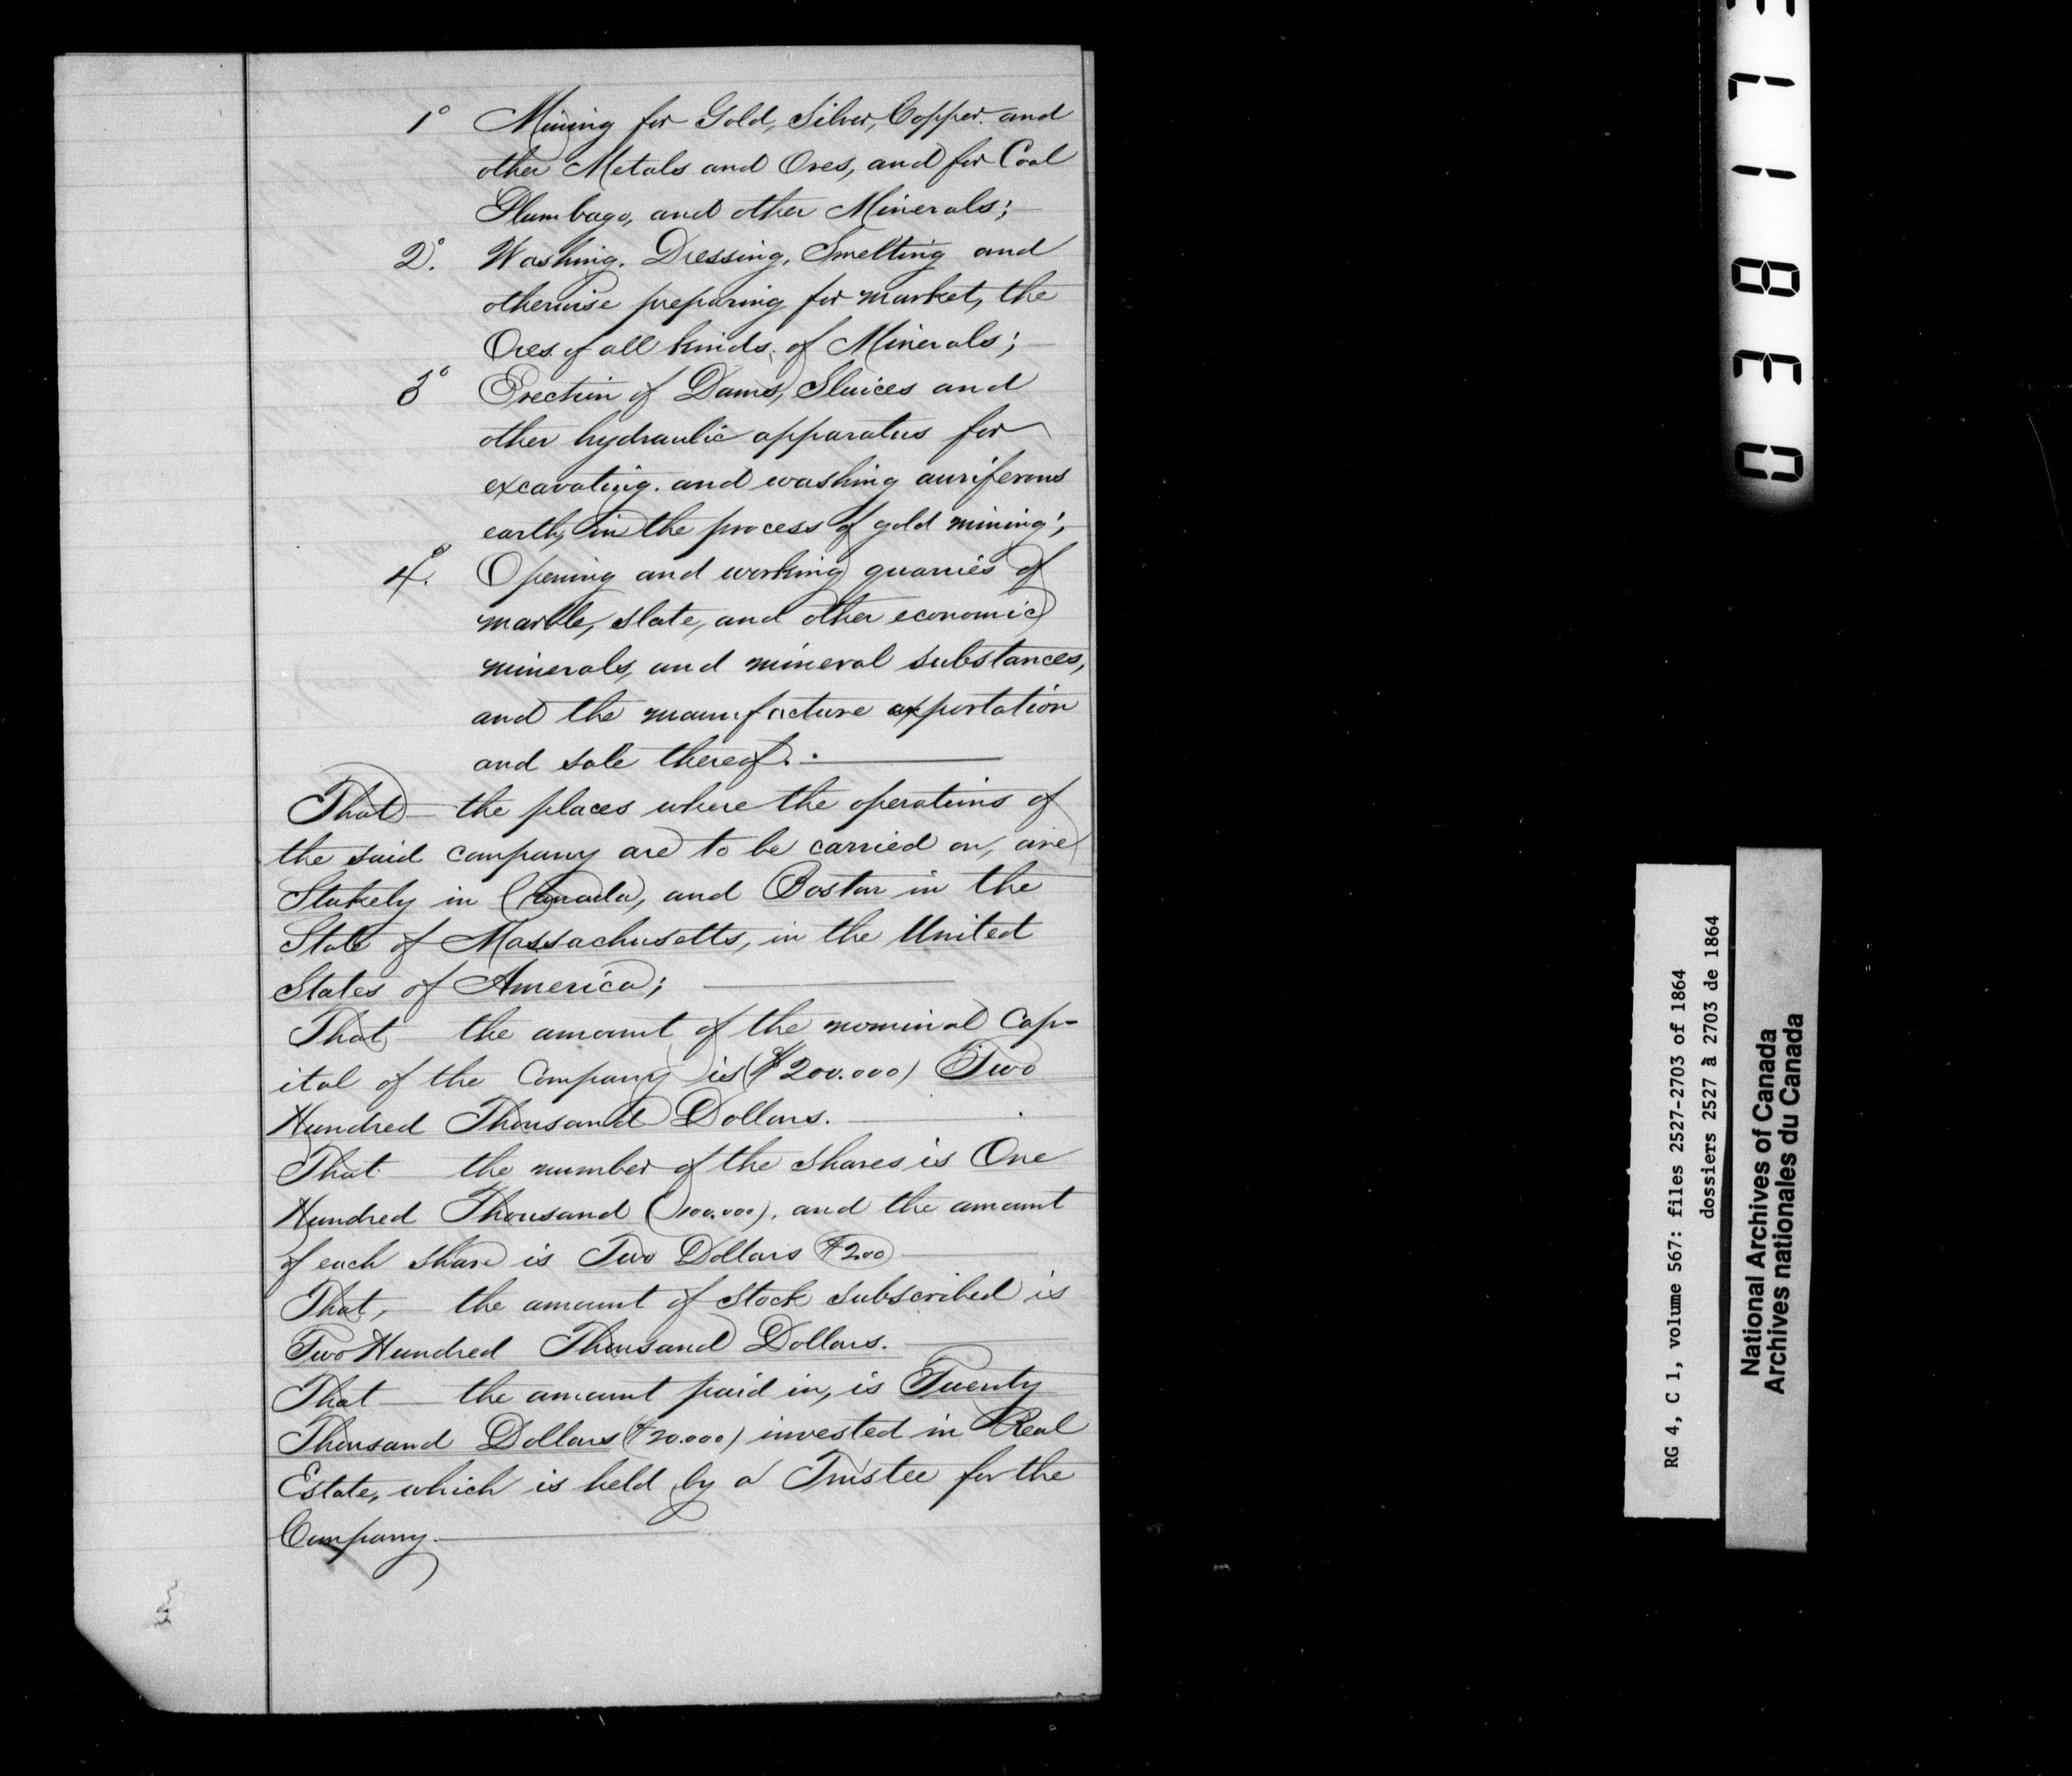 1° Mining for Gold, Silver, Copper and
other Metals and Ores, and for Coal
Plumbago, and other Minerals;
2°. Washing. Dressing, Smelting and
otherwise preparing for market, the
Ores of all kinds of Minerals;
3° Erection of Dams, Sluices and
other hydraulic apparatus for
excavating and washing auriferous
earth, in the process of gold mining;
4°. Opening and working quarries of
marble, slate, and other economic
minerals, and mineral substances,
and the manufacture exportation
and sale thereof.
That the places where the operations of
the said company are to be carried on, are
Stukely in Canada, and Boston in the
State of Massachusetts, in the United
States of America;
That the amount of the nominal Cap-
ital of the Company is ($200.000) Two
Hundred Thousand Dollars.
That the number of the shares is One
Hundred Thousand (100.000), and the amount
of each share is Two Dollars $2.00
That, the amount of Stock subscribed is
Two Hundred Thousand Dollars.
That the amount paid in, is Twenty
Thousand Dollars ($20.000) invested in Real
Estate, which is held by a Trustee for the
Company.
RG 4, C 1, volume 567: files 2527-2703 of 1864
dossiers 2527 à 2703 de 1864
National Archives of Canada
Archives nationales du Canada